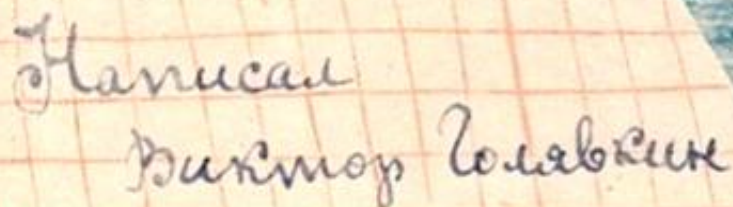 Написал
Виктор Голявкин